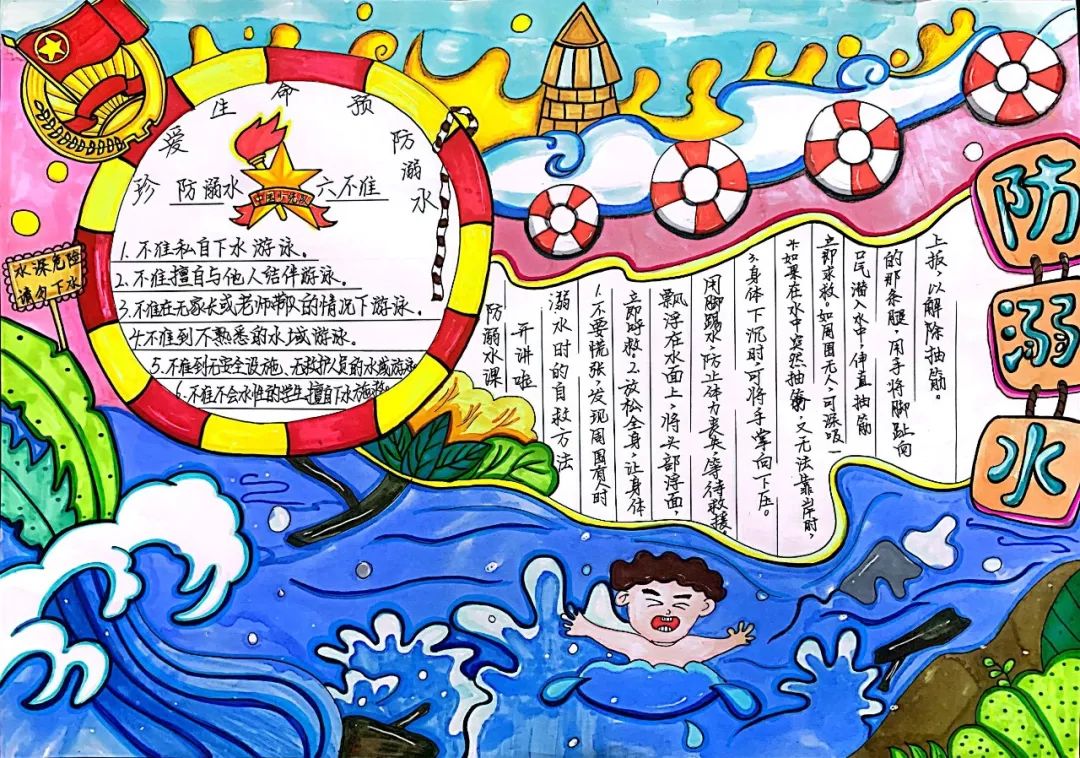 珍爱生命预防溺水
防溺水 六不准
1.不准私自下水游泳。
2.不准擅自与他人结伴游泳。
3.不准在无家长或老师带队的情况下游泳。
4.不准到不熟悉的水域游泳。
5.不准到无安全设施、无救护人员的水域游泳
6.不准不会水性的学生擅自下水施救。
水深危险
请勿下水
防溺水
防溺水课
开讲啦
溺水时的自救方法
1.不要慌张,发现周围有人时
立即呼救。2.放松全身,让身体
飘浮在水面上,将头部浮面,
用脚踢水,防止体力丧失,等待救援。
3.身体下沉时,可将手掌向下压。
4.如果在水中突然抽筋,又无法靠岸时,
立即求救。如周围无人,可深吸一
口气潜入水中,伸直抽筋
的那条腿,用手将脚趾向
上扳,以解除抽筋。